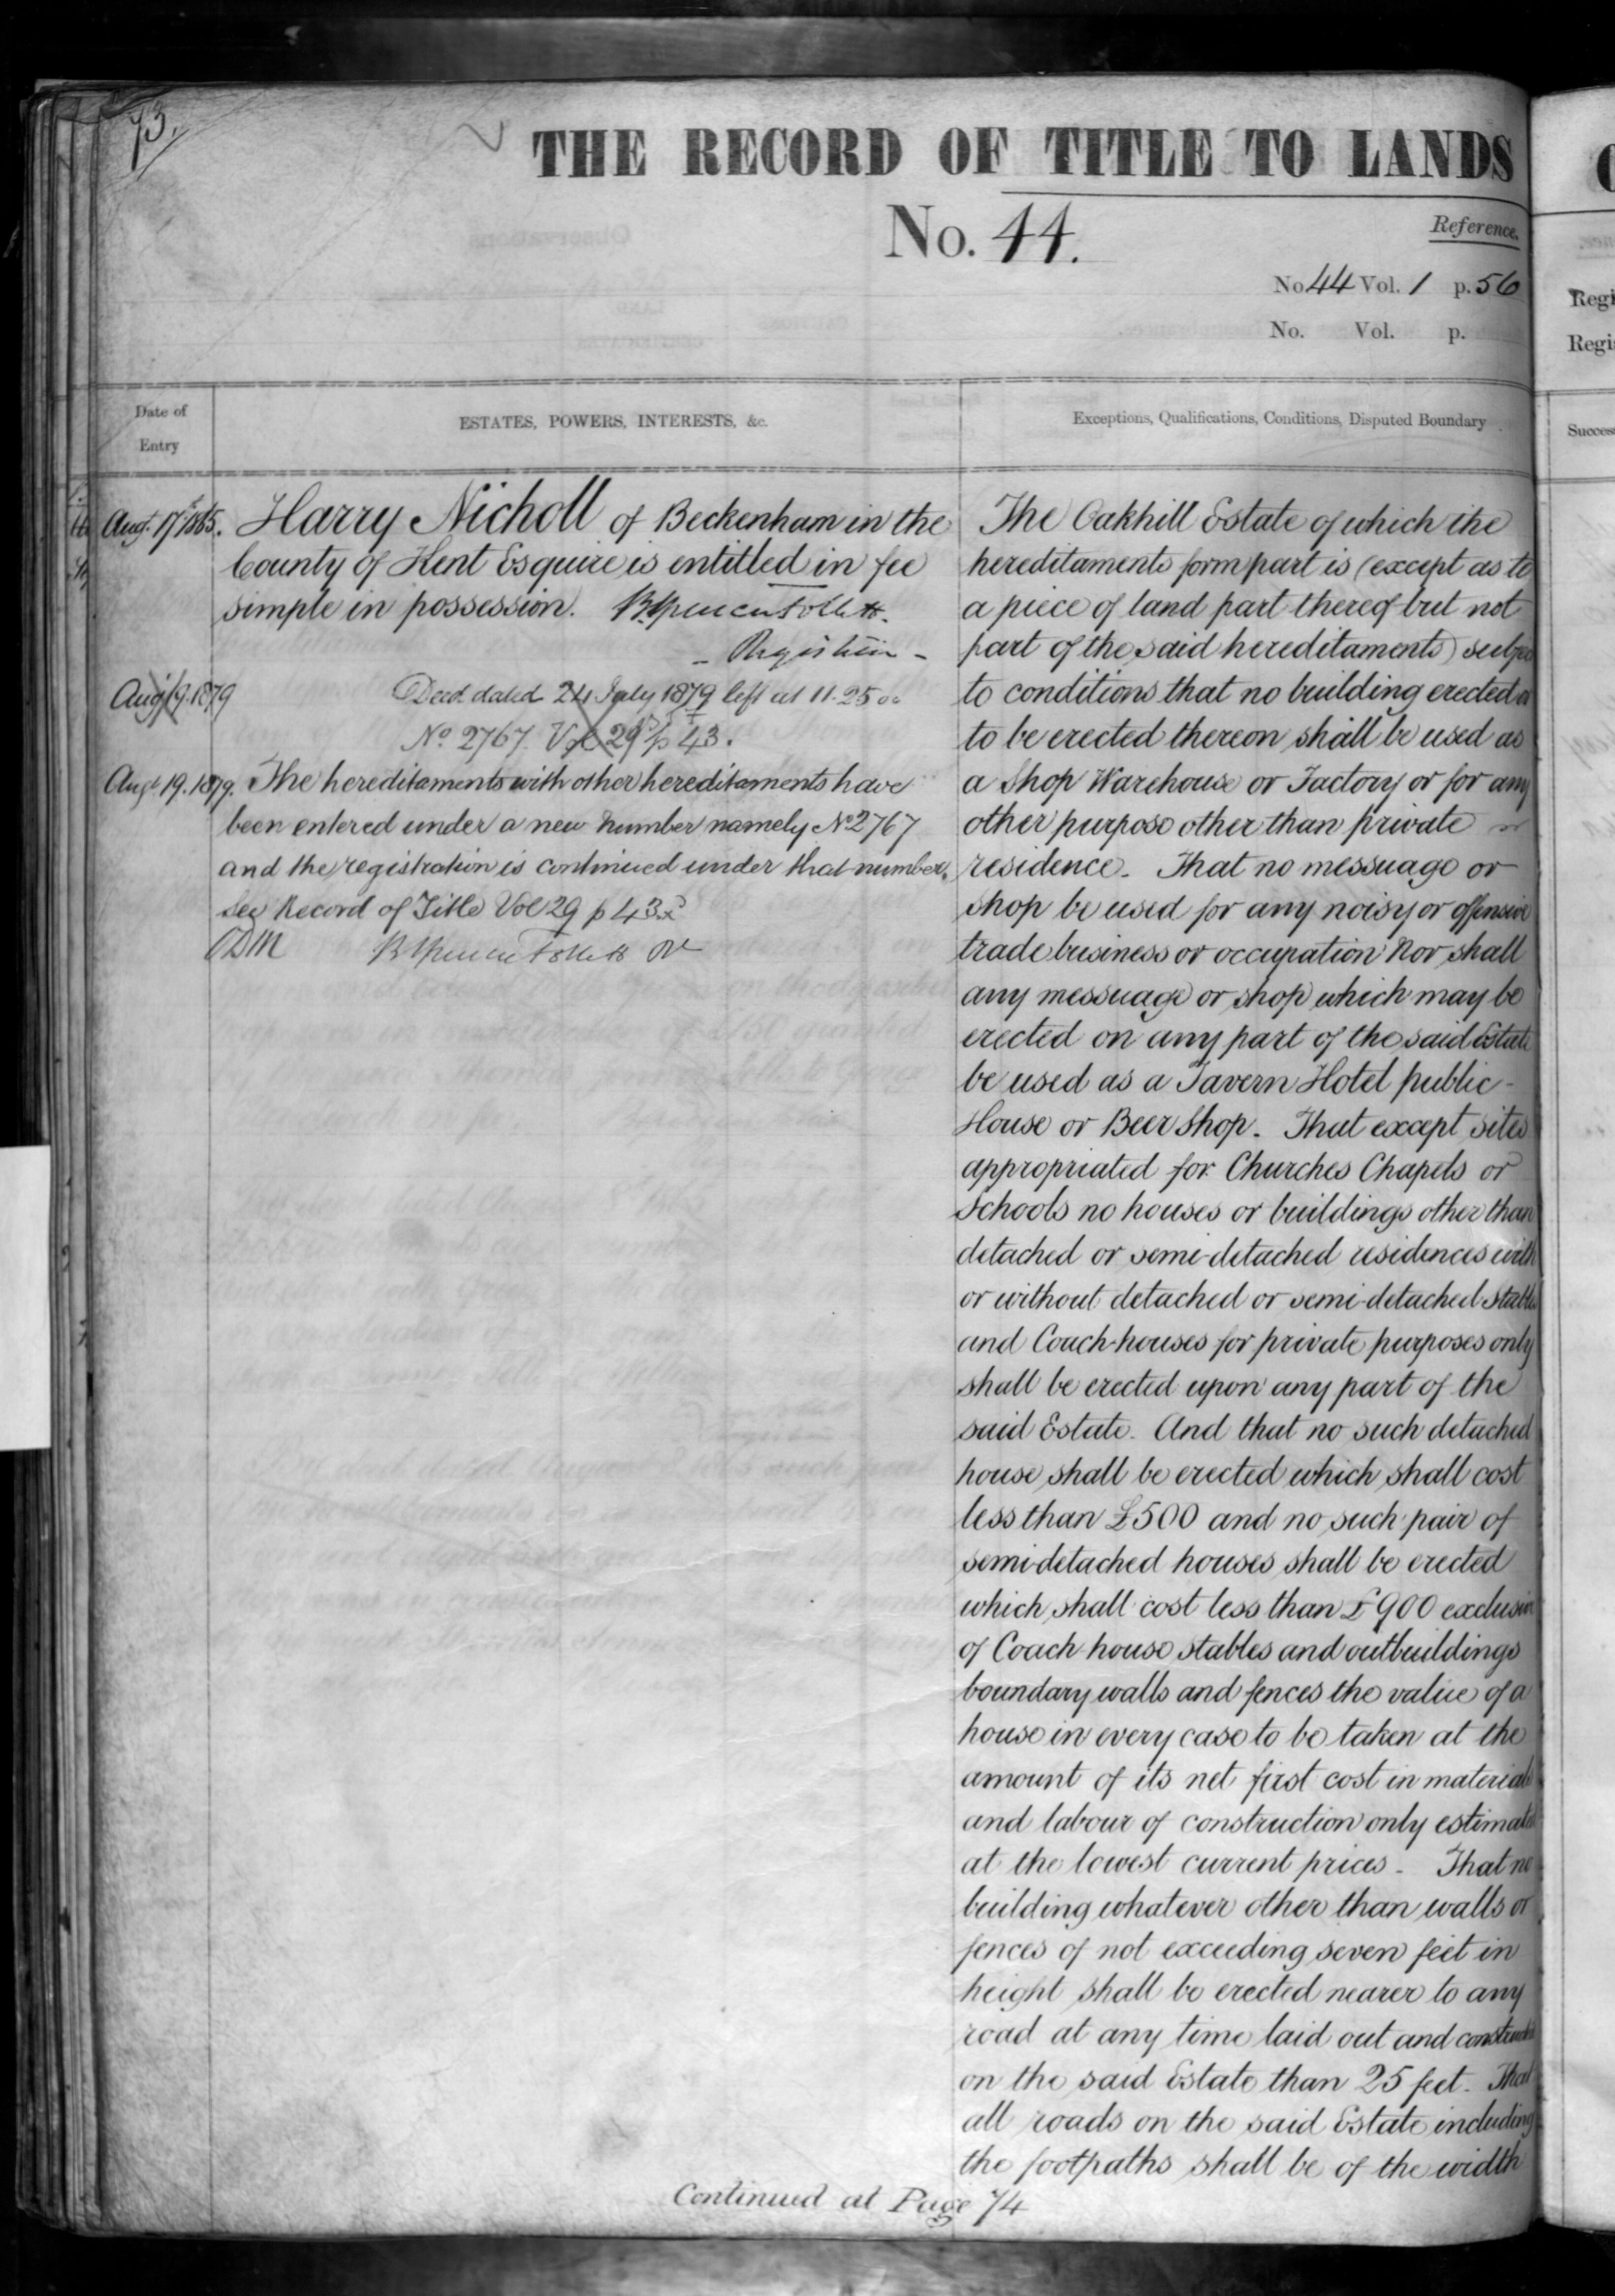 73.
THE RECORD OF TITLE TO LANDS
No. 44.
Reference.
No 44 Vol. 1 p. 56
No. Vol. p.
Date of Entry
ESTATES, POWERS, INTERESTS, &c.
Exceptions, Qualifications, Conditions, Disputed Boundary
Augt. 17th 1865. Harry Nicholl of Beckenham in the
County of Kent Esquire is entitled in fee
simple in possession. B. Spencer Follett.
- Registrar -
Aug 19. 1879 Deed dated 24 July 1879 left at 11.25
No 2767 Vol 29 p 43.
Augt 19. 1879. The hereditaments with other hereditaments have
been entered under a new number namely No 2767
and the registration is continued under that number.
See Record of Title Vol 29 p 43.
B Spencer Follett
The Oakhill Estate of which the
hereditaments form part is (except as to
a piece of land part thereof but not
part of the said hereditaments) subje
to conditions that no building erected or
to be erected thereon shall be used as
a Shop Warehouse or Factory or for any
other purpose other than private
residence. That no messuage or
shop be used for any noisy or offensive
trade business or occupation Nor shall
any messuage or shop which may be
erected on any part of the said Estate
be used as a Tavern Hotel public-
House or Beer Shop. That except sites
appropriated for Churches Chapels or
Schools no houses or buildings other than
detached or semi-detached residences with
or without detached or semi-detached stables
and Coach-houses for private purposes only
shall be erected upon any part of the
said Estate. And that no such detached
house shall be erected which shall cost
less than £500 and no such pair of
semi-detached houses shall be erected
which shall cost less than £900 exclusive
of Coach house stables and outbuildings
boundary walls and fences the value of a
house in every case to be taken at the
amount of its net first cost in materials
and labour of construction only estimated
at the lowest current prices - That no
building whatever other than walls or
fences of not exceeding seven feet in
height shall be erected nearer to any
road at any time laid out and constructed
on the said Estate than 25 feet. That
all roads on the said Estate including
the footpaths shall be of the width
Continued at Page 74
Regi
Regi
Success